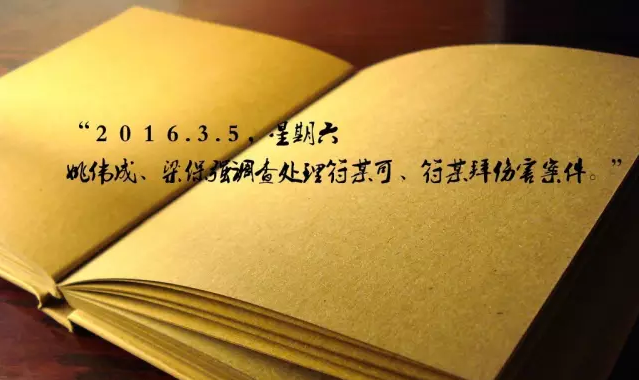 “2016.3.5，星期六
姚伟成、梁保强调查处理符某可、符某拜伤害案件。”